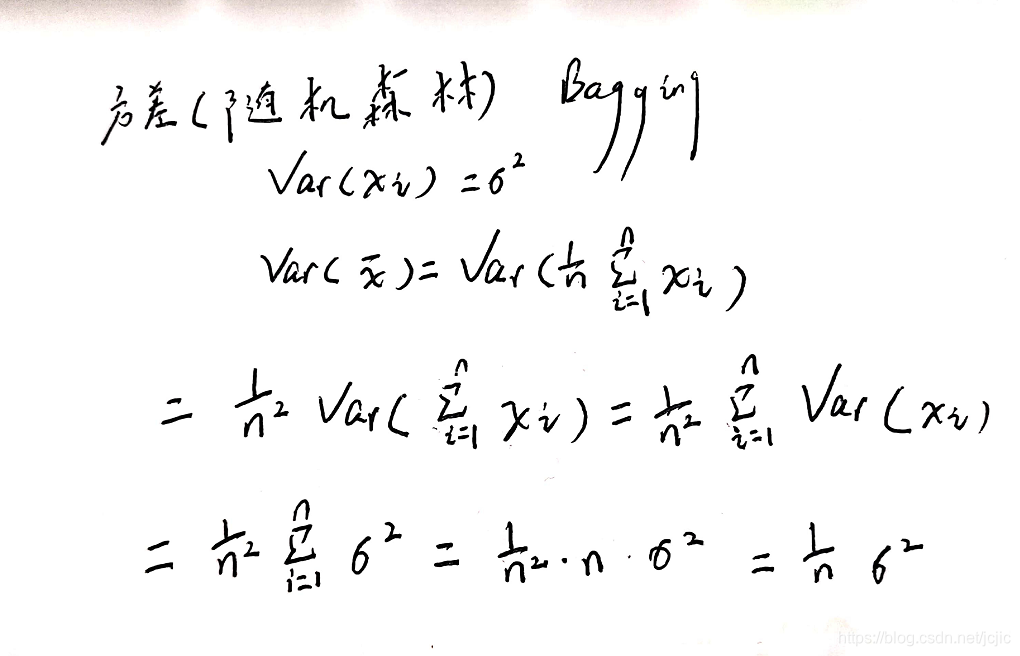 方差(随机森林) Bagging
Var(xi) = σ²
Var(x̄) = Var(1/n ∑ᵢ₌₁ⁿ xi)
= 1/n² Var(∑ᵢ₌₁ⁿ xi) = 1/n² ∑ᵢ₌₁ⁿ Var(xi)
= 1/n² ∑ᵢ₌₁ⁿ σ² = 1/n² · n · σ² = 1/n σ²
https://blog.csdn.net/jcjic